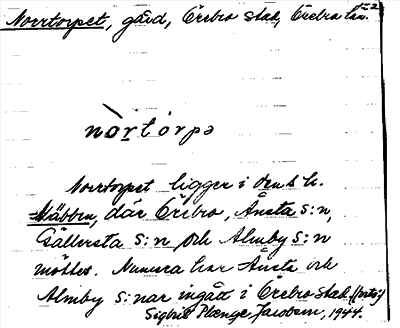 Norrtorpet, gård, Örebro stad, Örebro län.
nòrtórpə
Norrtorpet ligger i den s. k.
Näbben, där Örebro, Ånsta s:n,
Gällersta s:n och Almby s:n
möttes. Numera har Ånsta och
Almby s:nar ingått i Örebro stad. (forts.)
Signe Plenge Jacobson, 1944.